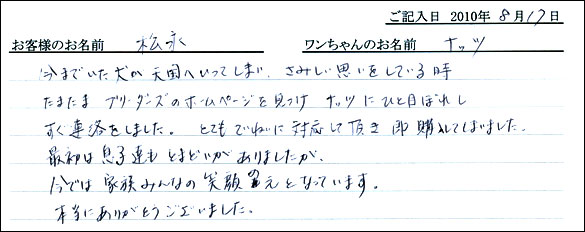 ご記入日 2010年 8月17日
お客様のお名前 松永 ワンちゃんのお名前 ナッツ
今までいた犬が天国へいってしまい、さみしい思いをしている時
たまたま ブリーダーズのホームページを見つけ ナッツにひと目ぼれし
すぐ連絡をしました。とてもていねいに対応して頂き 即購入してしまいました。
最初は息子達もとまどいがありましたが、
今では家族みんなの笑顔の元となっています。
本当にありがとうございました。